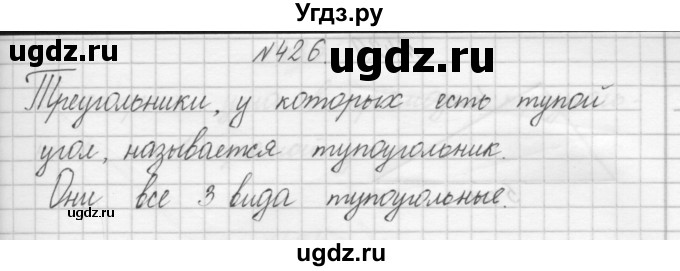 Угдз.ру
№426
ugdz.ru ugdz.ru ugdz.ru
Треугольники, у которых есть тупой
угол, называется тупоугольник.
Они все 3 вида тупоугольные.
ugdz.ru ugdz.ru
ugdz.ru